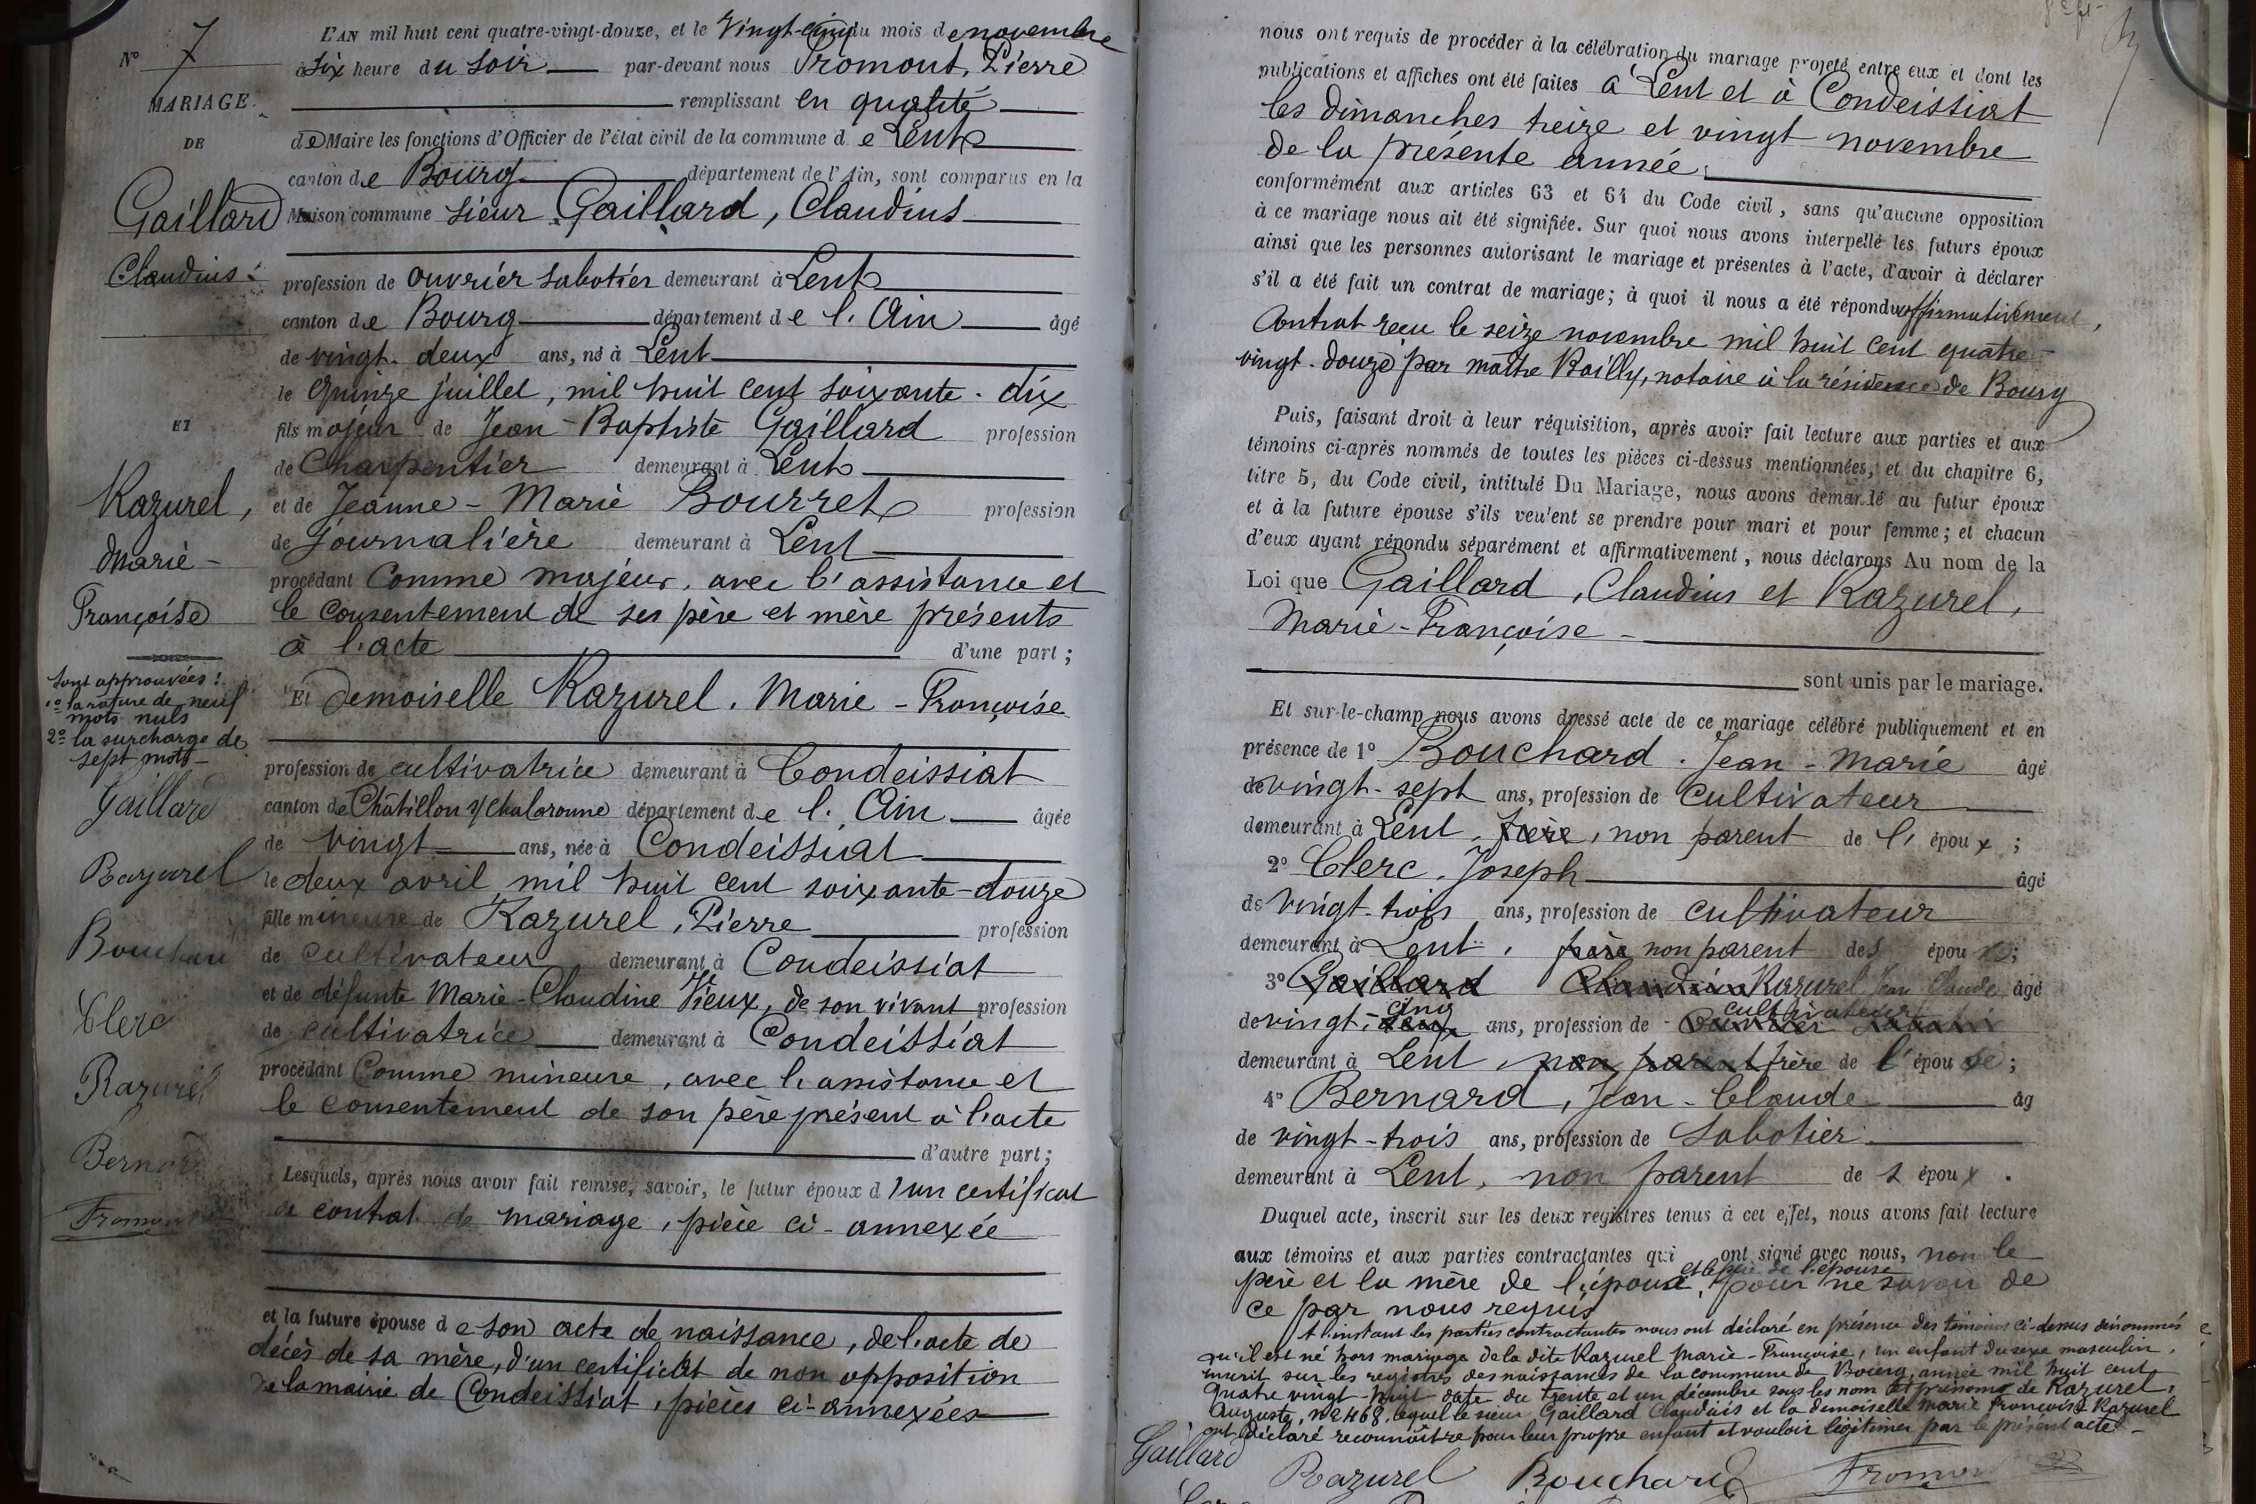 N° 7
MARIAGE
DE
Gaillard
Claudius
ET
Razurel,
Marie-
Françoise
Sont approuvées :
1° la rature de neuf
mots nuls
2° la surcharge de
sept mots-
Gaillard
Razurel
Bouchard
Clerc
Razurel
Bernard
Fromont
L'AN mil huit cent quatre-vingt-douze, et le Vingt-cinq du mois de novembre
à six heure du soir par-devant nous Fromont, Pierre
remplissant en qualité
de Maire les fonctions d'Officier de l'état civil de la commune de Lent
canton de Bourg département de l'Ain, sont comparus en la
Maison commune sieur Gaillard, Claudius
profession de ouvrier sabotier demeurant à Lent
canton de Bourg département de l'Ain âgé
de vingt-deux ans, né à Lent
le quinze juillet, mil huit cent soixante-dix
fils majeur de Jean-Baptiste Gaillard profession
de Charpentier demeurant à Lent
et de Jeanne-Marie Bourret profession
de journalière demeurant à Lent
procédant comme majeur, avec l'assistance et
le consentement de ses père et mère présents
à l'acte d'une part ;
Et demoiselle Razurel, Marie-Françoise
profession de cultivatrice demeurant à Condeissiat
canton de Châtillon s/ Chalaronne département de l'Ain âgée
de vingt ans, née à Condeissiat
le deux avril mil huit cent soixante-douze
fille mineure de Razurel, Pierre profession
de cultivateur demeurant à Condeissiat
et de défunte Marie-Claudine Vieux, de son vivant profession
de cultivatrice demeurant à Condeissiat
procédant comme mineure, avec l'assistance et
le consentement de son père présent à l'acte
d'autre part ;
Lesquels, après nous avoir fait remise, savoir, le futur époux d'un certificat
de contrat de mariage, pièce ci-annexée
et la future épouse de son acte de naissance, de l'acte de
décès de sa mère, d'un certificat de non opposition
de la mairie de Condeissiat, pièces ci-annexées
nous ont requis de procéder à la célébration du mariage projeté entre eux et dont les
publications et affiches ont été faites à Lent et à Condeissiat
les dimanches treize et vingt novembre
de la présente année,
conformément aux articles 63 et 64 du Code civil, sans qu'aucune opposition
à ce mariage nous ait été signifiée. Sur quoi nous avons interpellé les futurs époux
ainsi que les personnes autorisant le mariage et présentes à l'acte, d'avoir à déclarer
s'il a été fait un contrat de mariage ; à quoi il nous a été répondu affirmativement,
Contrat reçu le seize novembre mil huit cent quatre-
vingt-douze par maître Bailly, notaire à la résidence de Bourg
Puis, faisant droit à leur réquisition, après avoir fait lecture aux parties et aux
témoins ci-après nommés de toutes les pièces ci-dessus mentionnées, et du chapitre 6,
titre 5, du Code civil, intitulé Du Mariage, nous avons demandé au futur époux
et à la future épouse s'ils veulent se prendre pour mari et pour femme ; et chacun
d'eux ayant répondu séparément et affirmativement, nous déclarons Au nom de la
Loi que Gaillard, Claudius et Razurel,
Marie-Françoise-
sont unis par le mariage.
Et sur-le-champ nous avons dressé acte de ce mariage célébré publiquement et en
présence de 1° Bouchard, Jean-Marie âgé
de vingt-sept ans, profession de cultivateur
demeurant à Lent, frère, non parent de l'époux ;
2° Clerc, Joseph âgé
de vingt-trois ans, profession de cultivateur
demeurant à Lent, frère non parent des époux ;
3° Gaillard Claudius Razurel Jean Claude âgé
de vingt-deux cinq ans, profession de ouvrier sabotier cultivateur
demeurant à Lent, non parent frère de l'épouse ;
4° Bernard, Jean-Claude âg
de vingt-trois ans, profession de sabotier
demeurant à Lent, non parent des époux.
Duquel acte, inscrit sur les deux registres tenus à cet effet, nous avons fait lecture
aux témoins et aux parties contractantes qui ont signé avec nous, non le
père et la mère de l'époux, et le père de l'épouse pour ne savoir de
ce par nous requis
A l'instant les parties contractantes nous ont déclaré en présence des témoins ci-dessus dénommés
qu'il est né hors mariage de la dite Razurel Marie-Françoise, un enfant du sexe masculin,
inscrit sur les registres des naissances de la commune de Bourg, année mil huit cent
quatre vingt-huit date du trente et un décembre sous les nom et prénoms de Razurel,
Auguste, N° 468, lequel le sieur Gaillard Claudius et la demoiselle Marie Françoise Razurel
ont déclaré reconnaître pour leur propre enfant et vouloir légitimer par le présent acte-
Gaillard Razurel Bouchard Fromont